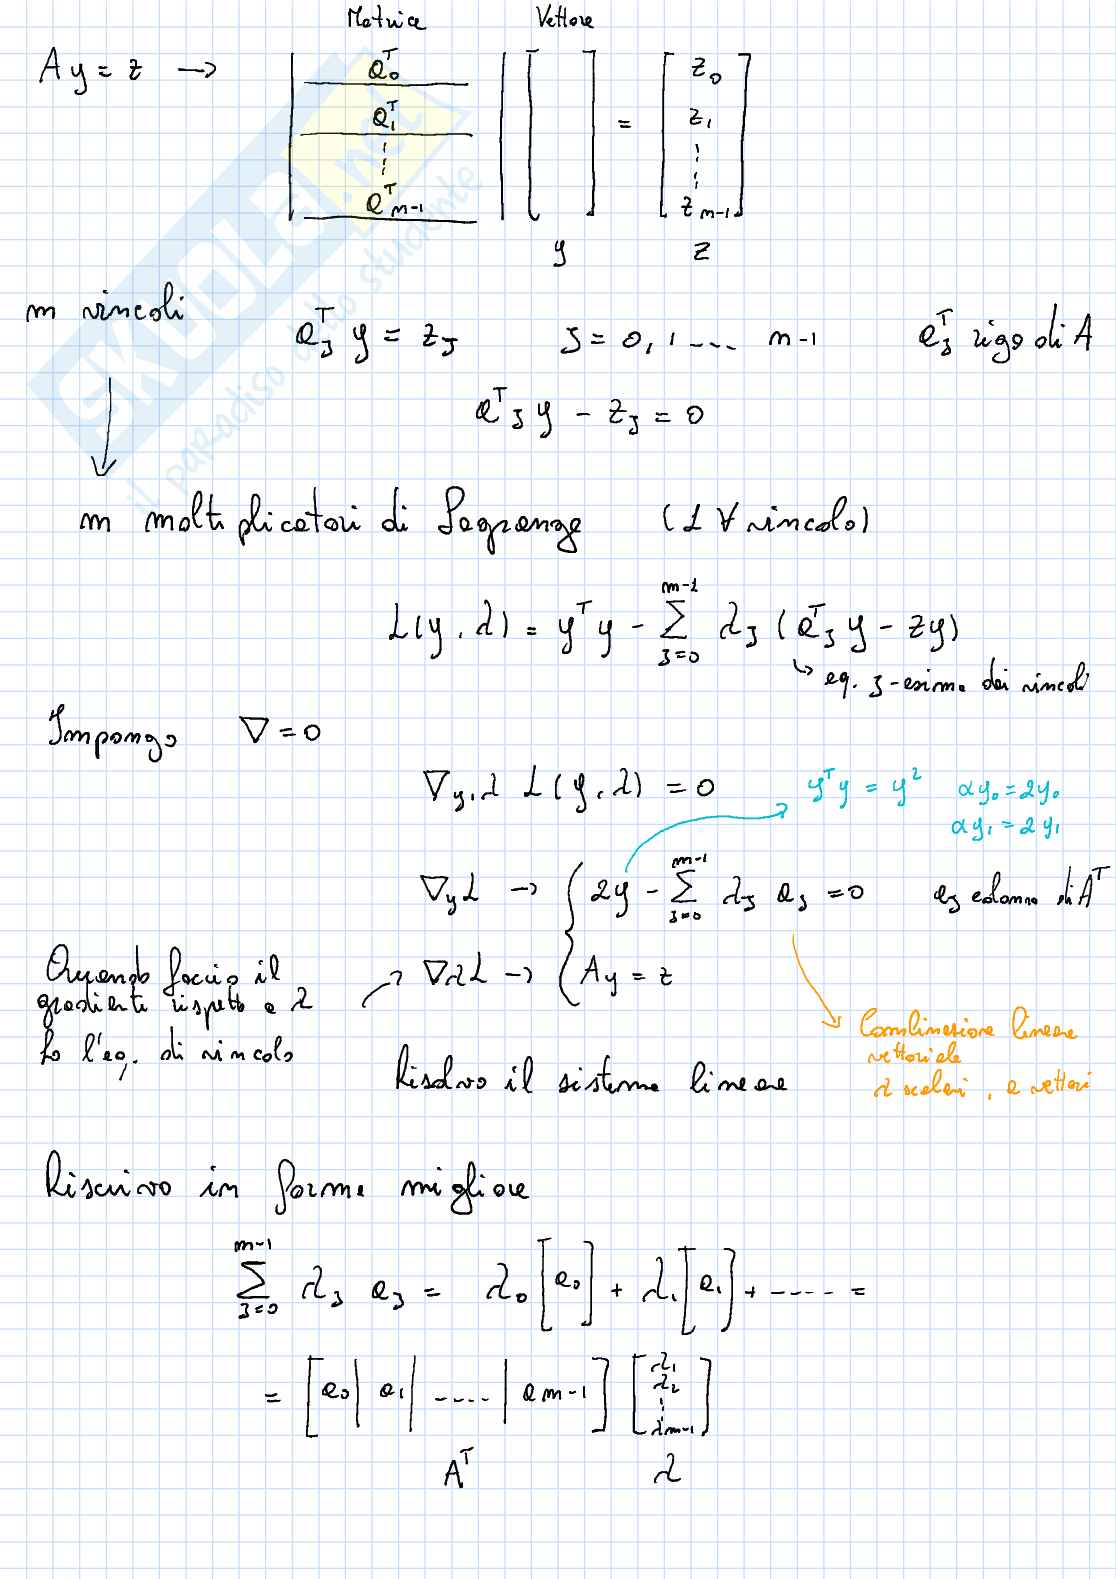 Matrice Vettore
A y = z → [ a₀ᵀ ] [ ] = [ z₀ ]
a₁ᵀ z₁
⋮ ⋮
aᵀm-1 z m-1
y z
m vincoli
aⱼᵀ y = zⱼ j = 0, 1 ---- m-1 aⱼᵀ riga di A
aᵀⱼ y - zⱼ = 0
m moltiplicatori di Lagrange (1 ∀ vincolo)
L(y, λ) = yᵀy - ∑ⱼ₌₀ᵐ⁻¹ λⱼ (aᵀⱼ y - zy)
↳ eq. j-esima dei vincoli
Impongo ∇ = 0
∇y,λ L(y, λ) = 0 yᵀy = y² αy₀ = 2y₀
αy₁ = 2y₁
∇y L → { 2y - ∑ⱼ₌₀ᵐ⁻¹ λⱼ aⱼ = 0 aⱼ colonna di Aᵀ
∇λ L → { Ay = z
Quando faccio il
gradiente rispetto a λ
ho l'eq. di vincolo
Combinazione lineare
vettoriale
λ scalari, a vettori
Risolvo il sistema lineare
Riscrivo in forma migliore
∑ⱼ₌₀ᵐ⁻¹ λⱼ aⱼ = λ₀ [a₀] + λ₁ [a₁] + ----- =
= [a₀ | a₁ | ----- | a m-1] [λ₁ λ₂ ⋮ λm-1]
Aᵀ λ
SKUOLA.net
il paradiso dello studente